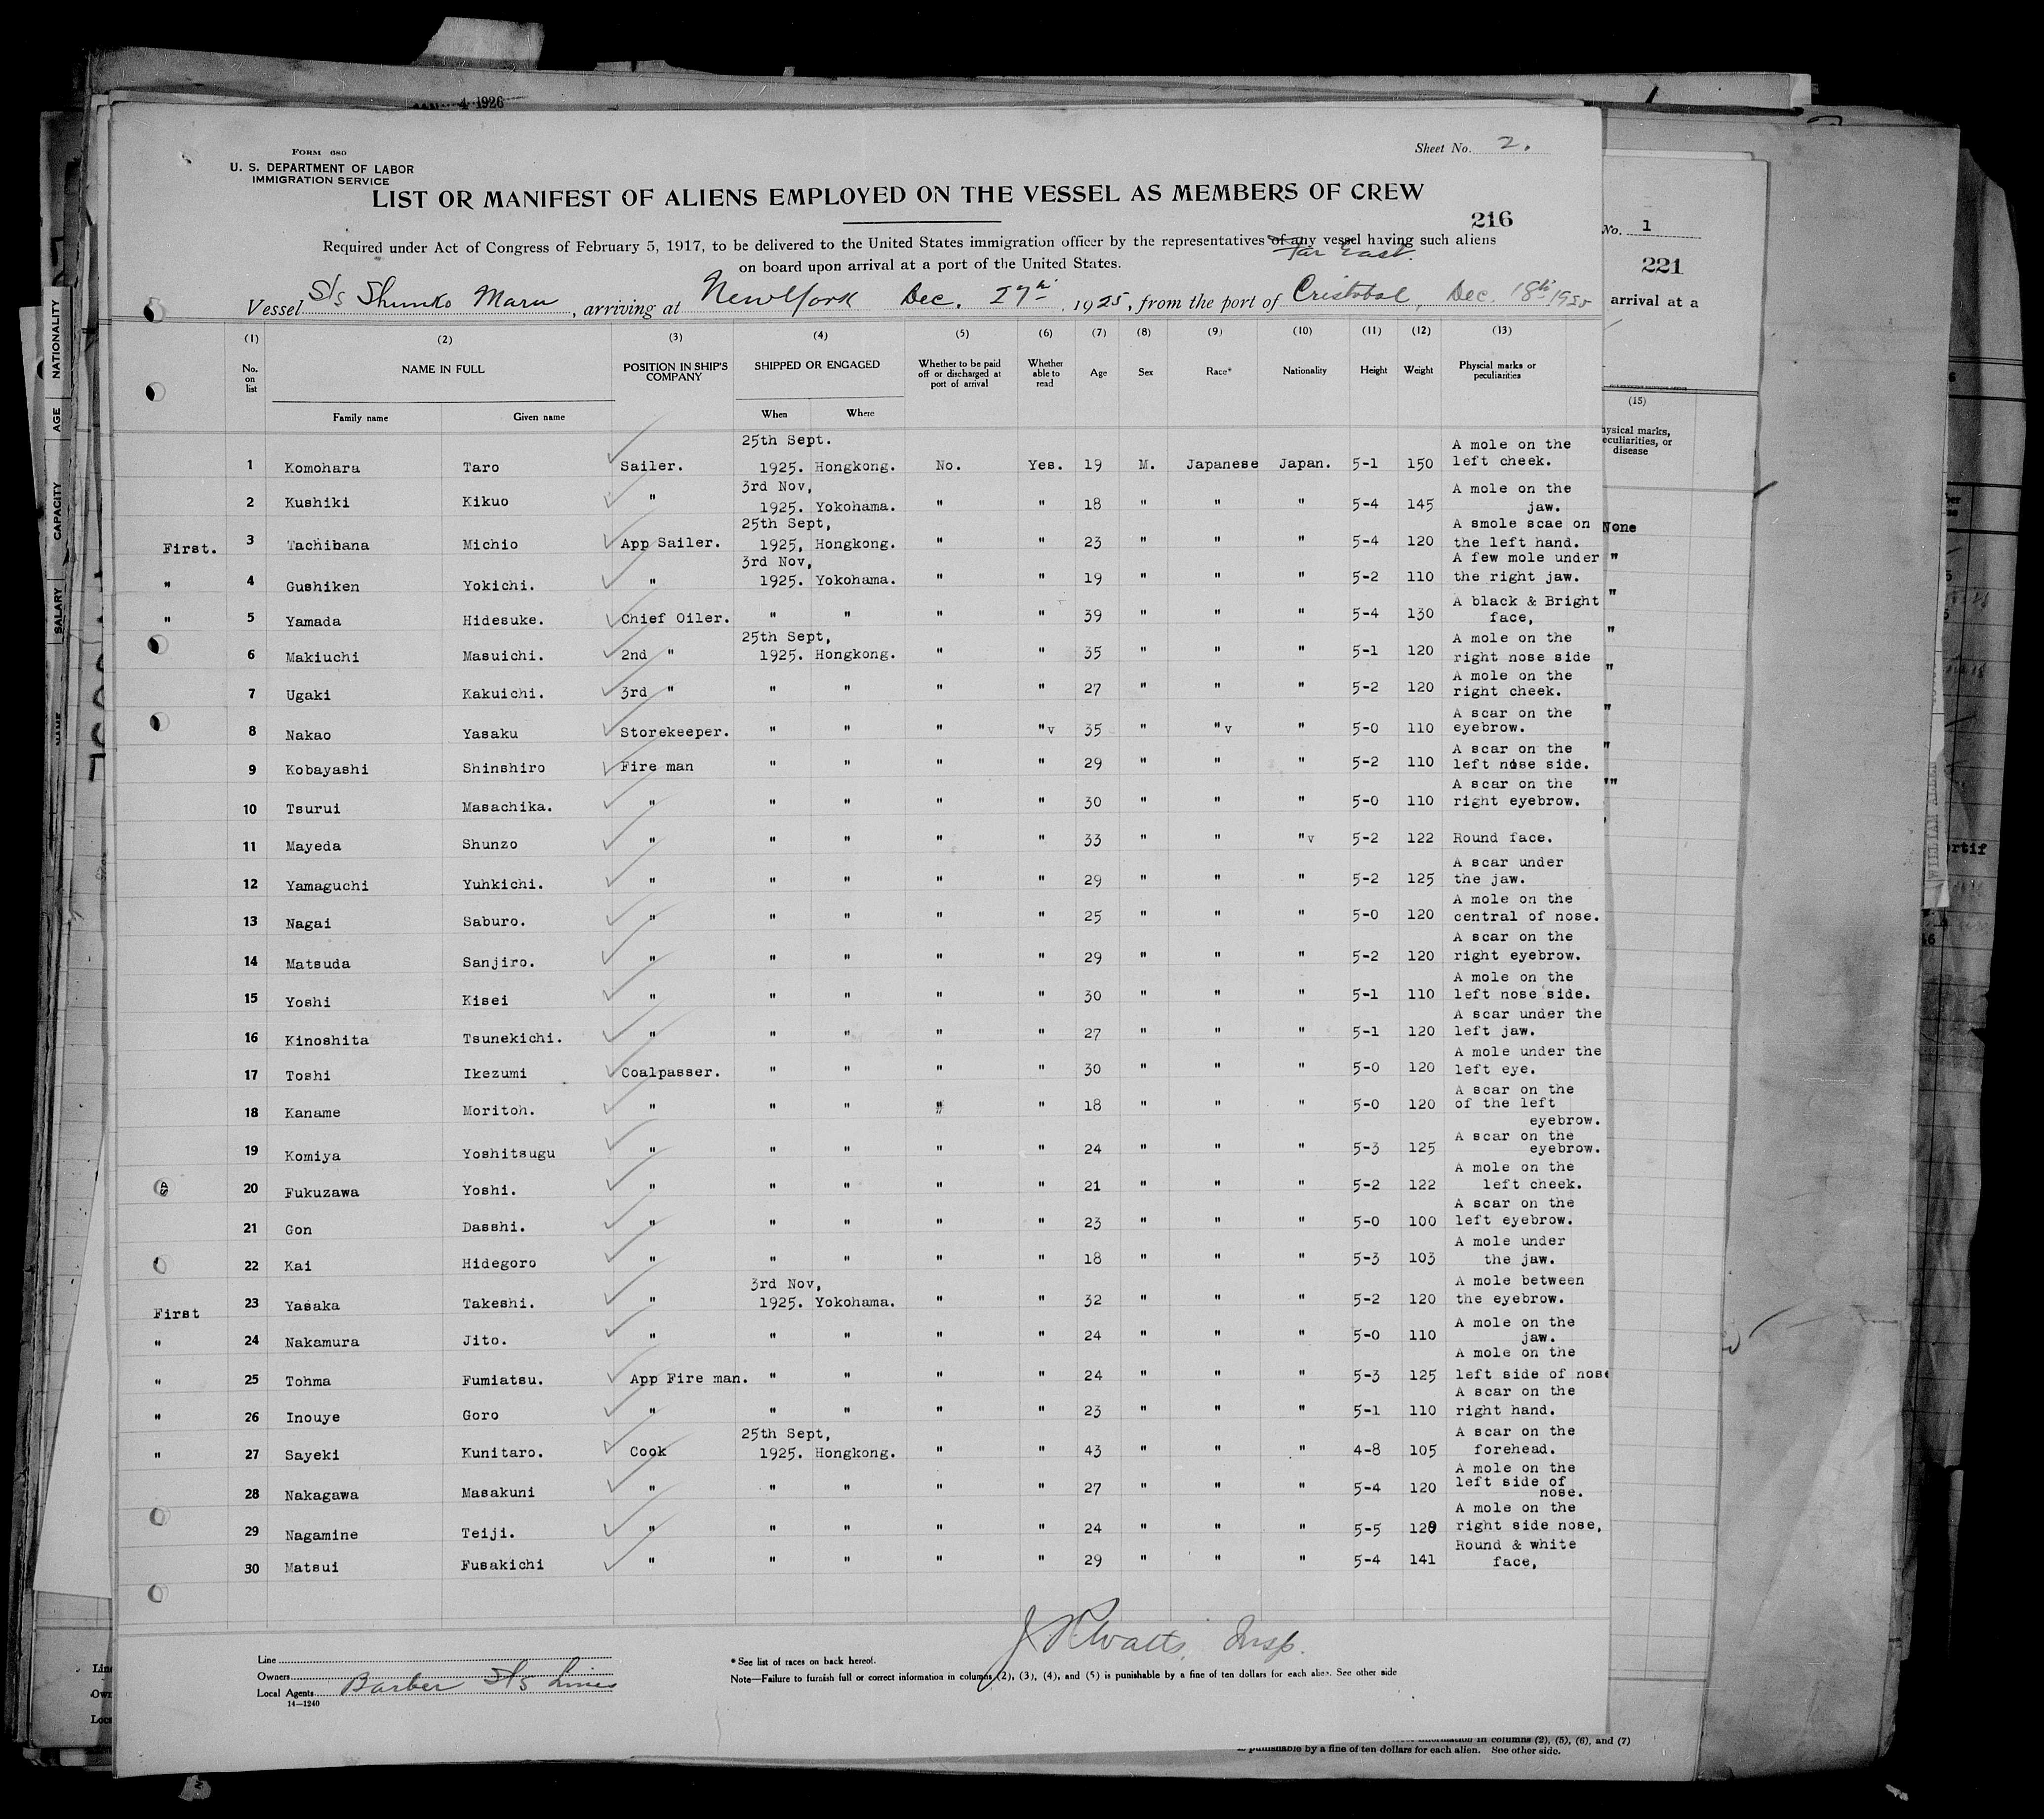 4 1926
Form 680
U. S. DEPARTMENT OF LABOR
IMMIGRATION SERVICE
Sheet No. 2.
LIST OR MANIFEST OF ALIENS EMPLOYED ON THE VESSEL AS MEMBERS OF CREW
216
Required under Act of Congress of February 5, 1917, to be delivered to the United States immigration officer by the representatives of any vessel having such aliens
Far East.
on board upon arrival at a port of the United States.
Vessel S/S Shunko Maru, arriving at New York Dec. 27th, 1925, from the port of Cristobal, Dec. 18th 1925
(1) (2) (3) (4) (5) (6) (7) (8) (9) (10) (11) (12) (13)
No. on list NAME IN FULL POSITION IN SHIP'S COMPANY SHIPPED OR ENGAGED Whether to be paid off or discharged at port of arrival Whether able to read Age Sex Race* Nationality Height Weight Physcial marks or peculiarities
Family name Given name When Where
25th Sept. A mole on the
1 Komohara Taro Sailer. 1925. Hongkong. No. Yes. 19 M. Japanese Japan. 5-1 150 left cheek.
3rd Nov, A mole on the
2 Kushiki Kikuo " 1925. Yokohama. " " 18 " " " 5-4 145 jaw.
25th Sept, A smole scae on
First. 3 Tachibana Michio App Sailer. 1925, Hongkong. " " 23 " " " 5-4 120 the left hand.
3rd Nov, A few mole under
" 4 Gushiken Yokichi. " 1925. Yokohama. " " 19 " " " 5-2 110 the right jaw.
A black & Bright
" 5 Yamada Hidesuke. Chief Oiler. " " " " 39 " " " 5-4 130 face,
25th Sept, A mole on the
6 Makiuchi Masuichi. 2nd " 1925. Hongkong. " " 35 " " " 5-1 120 right nose side
A mole on the
7 Ugaki Kakuichi. 3rd " " " " " 27 " " " 5-2 120 right cheek.
A scar on the
8 Nakao Yasaku Storekeeper. " " " "v 35 " "v " 5-0 110 eyebrow.
A scar on the
9 Kobayashi Shinshiro Fire man " " " " 29 " " " 5-2 110 left nose side.
A scar on the
10 Tsurui Masachika. " " " " " 30 " " " 5-0 110 right eyebrow.
11 Mayeda Shunzo " " " " " 33 " " "v 5-2 122 Round face.
A scar under
12 Yamaguchi Yuhkichi. " " " " " 29 " " " 5-2 125 the jaw.
A mole on the
13 Nagai Saburo. " " " " " 25 " " " 5-0 120 central of nose.
A scar on the
14 Matsuda Sanjiro. " " " " " 29 " " " 5-2 120 right eyebrow.
A mole on the
15 Yoshi Kisei " " " " " 30 " " " 5-1 110 left nose side.
A scar under the
16 Kinoshita Tsunekichi. " " " " " 27 " " " 5-1 120 left jaw.
A mole under the
17 Toshi Ikezumi Coalpasser. " " " " 30 " " " 5-0 120 left eye.
A scar on the
18 Kaname Moritoh. " " " " " 18 " " " 5-0 120 of the left
eyebrow.
A scar on the
19 Komiya Yoshitsugu " " " " " 24 " " " 5-3 125 eyebrow.
A mole on the
20 Fukuzawa Yoshi. " " " " " 21 " " " 5-2 122 left cheek.
A scar on the
21 Gon Dasshi. " " " " " 23 " " " 5-0 100 left eyebrow.
A mole under
22 Kai Hidegoro " " " " " 18 " " " 5-3 103 the jaw.
3rd Nov, A mole between
First 23 Yasaka Takeshi. " 1925. Yokohama. " " 32 " " " 5-2 120 the eyebrow.
A mole on the
" 24 Nakamura Jito. " " " " " 24 " " " 5-0 110 jaw.
A mole on the
" 25 Tohma Fumiatsu. App Fire man. " " " " 24 " " " 5-3 125 left side of nose
A scar on the
" 26 Inouye Goro " " " " " 23 " " " 5-1 110 right hand.
25th Sept, A scar on the
" 27 Sayeki Kunitaro. Cook 1925. Hongkong. " " 43 " " " 4-8 105 forehead.
A mole on the
28 Nakagawa Masakuni " " " " " 27 " " " 5-4 120 left side of
nose.
A mole on the
29 Nagamine Teiji. " " " " " 24 " " " 5-5 120 right side nose,
Round & white
30 Matsui Fusakichi " " " " " 29 " " " 5-4 141 face,
J R Watts, Insp.
Line
Owners
Local Agents Barber S/S Lines
14—1240
* See list of races on back hereof.
Note—Failure to furnish full or correct information in columns (2), (3), (4), and (5) is punishable by a fine of ten dollars for each alien. See other side
No. 1
221
arrival at a
(15)
physical marks,
peculiarities, or
disease
None
"
"
"
"
"
"
""
information in columns (2), (5), (6), and (7)
is punishable by a fine of ten dollars for each alien. See other side.
NATIONALITY
AGE
CAPACITY
SALARY
NAME